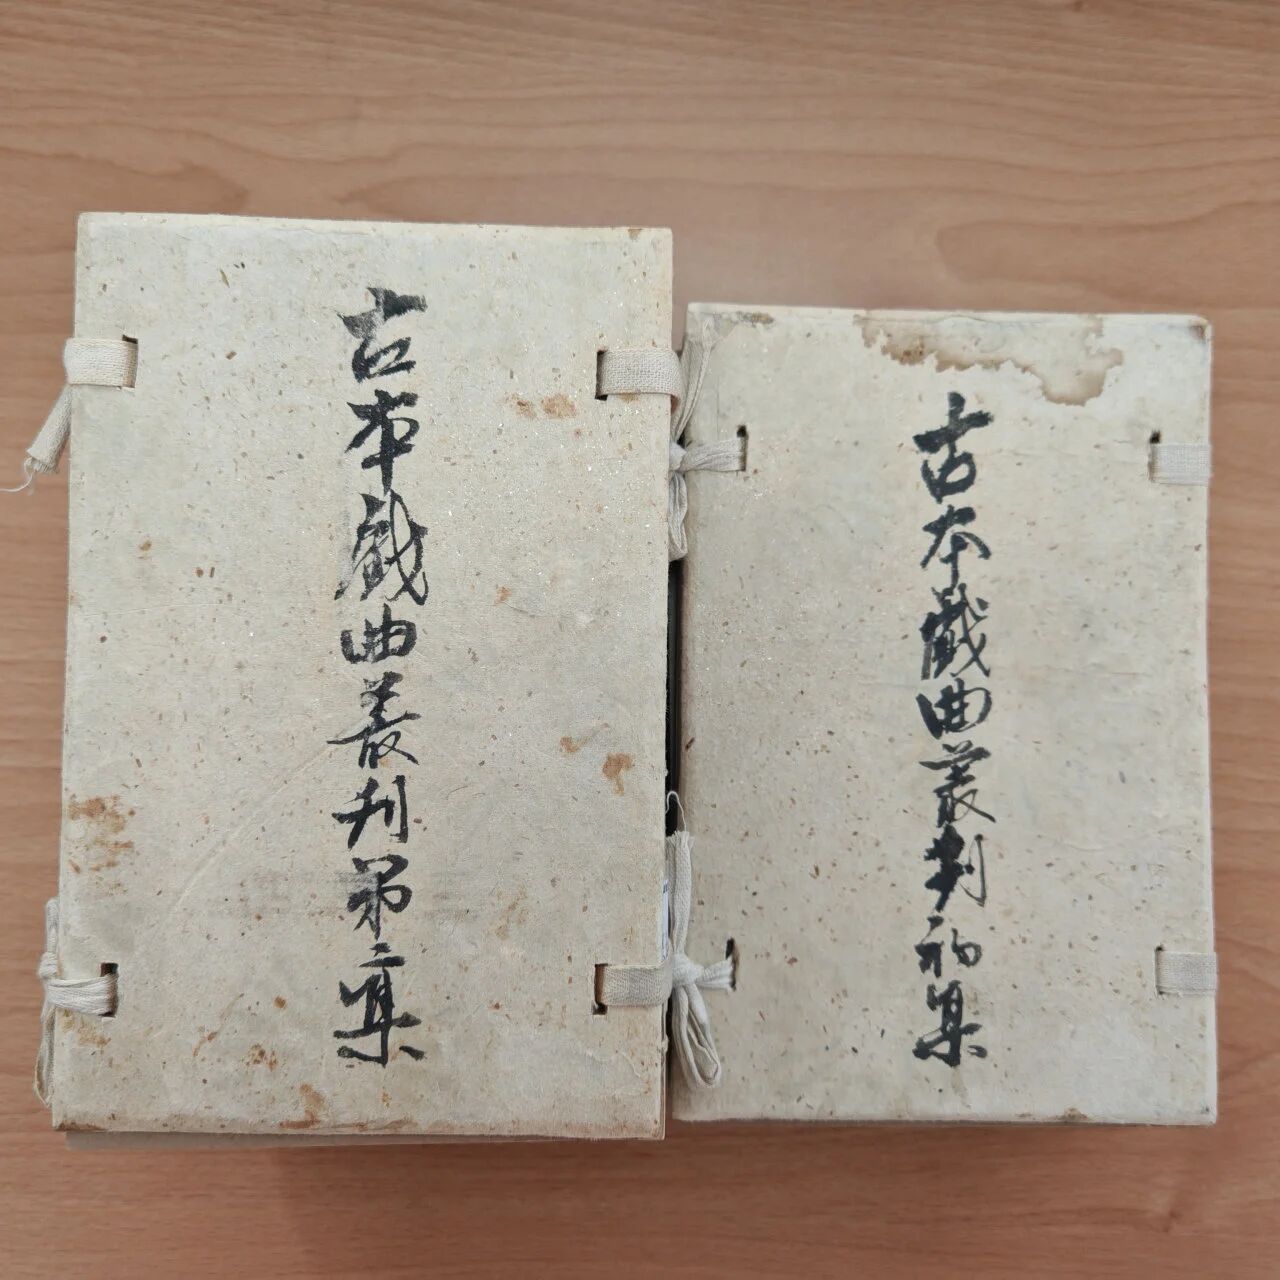 古本戲曲叢刊第二集
古本戲曲叢刊初集